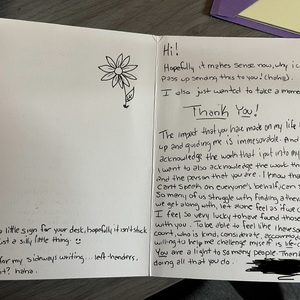 little sign for your desk, hopefully it isn't
just a silly little thing
for my sideways writing... left handers,
haha.
Hi!
Hopefully it makes sense now, why i c
pass up sending this to you! (haha).
I also just wanted to take a mome
Thank You!
The impact that you have made on my life
up and guiding me is immesurable. And
acknowledge the work that i put into my
I want to also acknowledge the work th
and the person that you are. I know tha
Can't speak on everyone's behalf
So many of us struggle with finding a
we get along with, let alone feel as if we
I feel so very lucky to have found those
with you. To be able to feel like i
court, who is kind, considerate,
willing to help me challenge myself is
You are a light to so many people. Thank
doing all that you do.